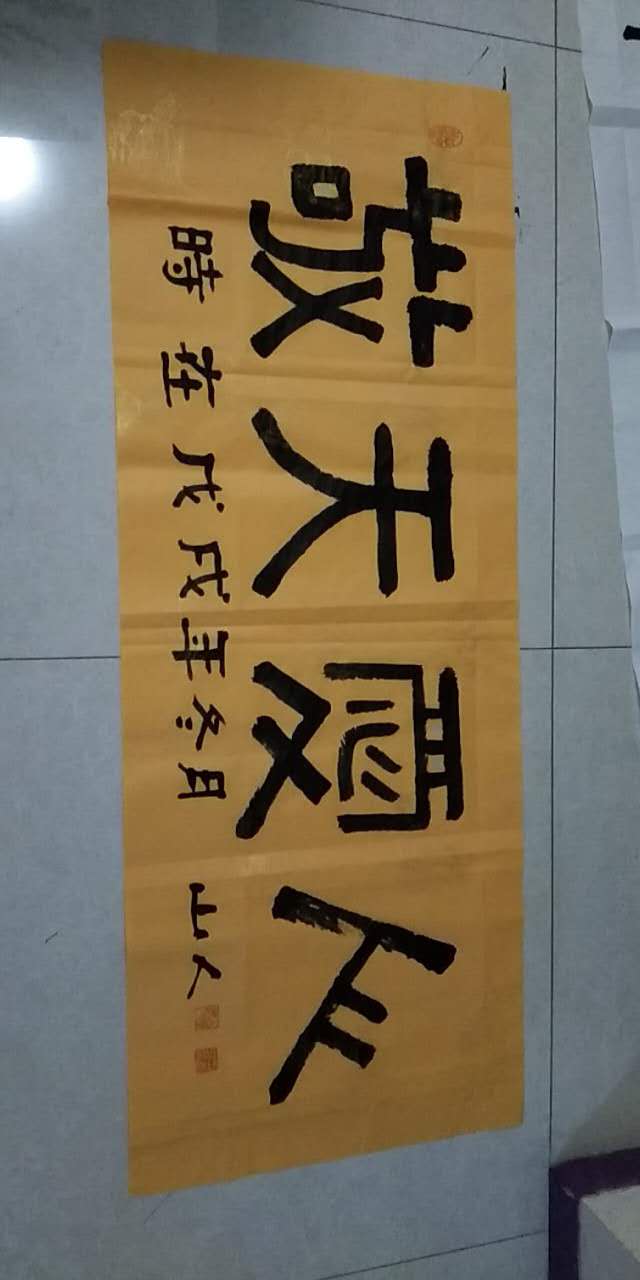 敬天愛人
時在戊戌年冬月 山人